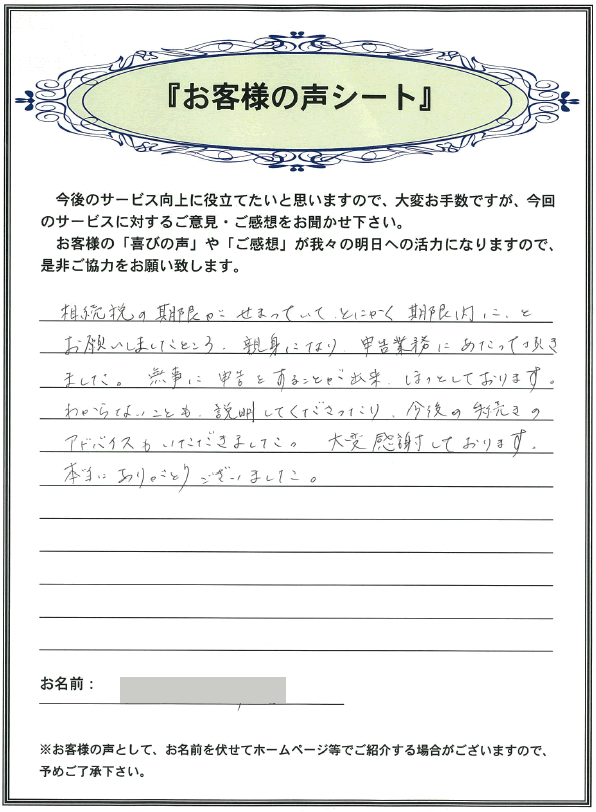 『お客様の声シート』
今後のサービス向上に役立てたいと思いますので、大変お手数ですが、今回
のサービスに対するご意見・ご感想をお聞かせ下さい。
お客様の「喜びの声」や「ご感想」が我々の明日への活力になりますので、
是非ご協力をお願い致します。
相続税の期限がせまっていて、とにかく期限内に、と
お願いしましたところ、親身になり、申告業務にあたって頂き
ました。無事に申告をすることが出来、ほっとしております。
わからないことも、説明してくださったり、今後の手続きの
アドバイスもいただきました。大変感謝しております。
本当にありがとうございました。
お名前：
※お客様の声として、お名前を伏せてホームページ等でご紹介する場合がございますので、
予めご了承下さい。